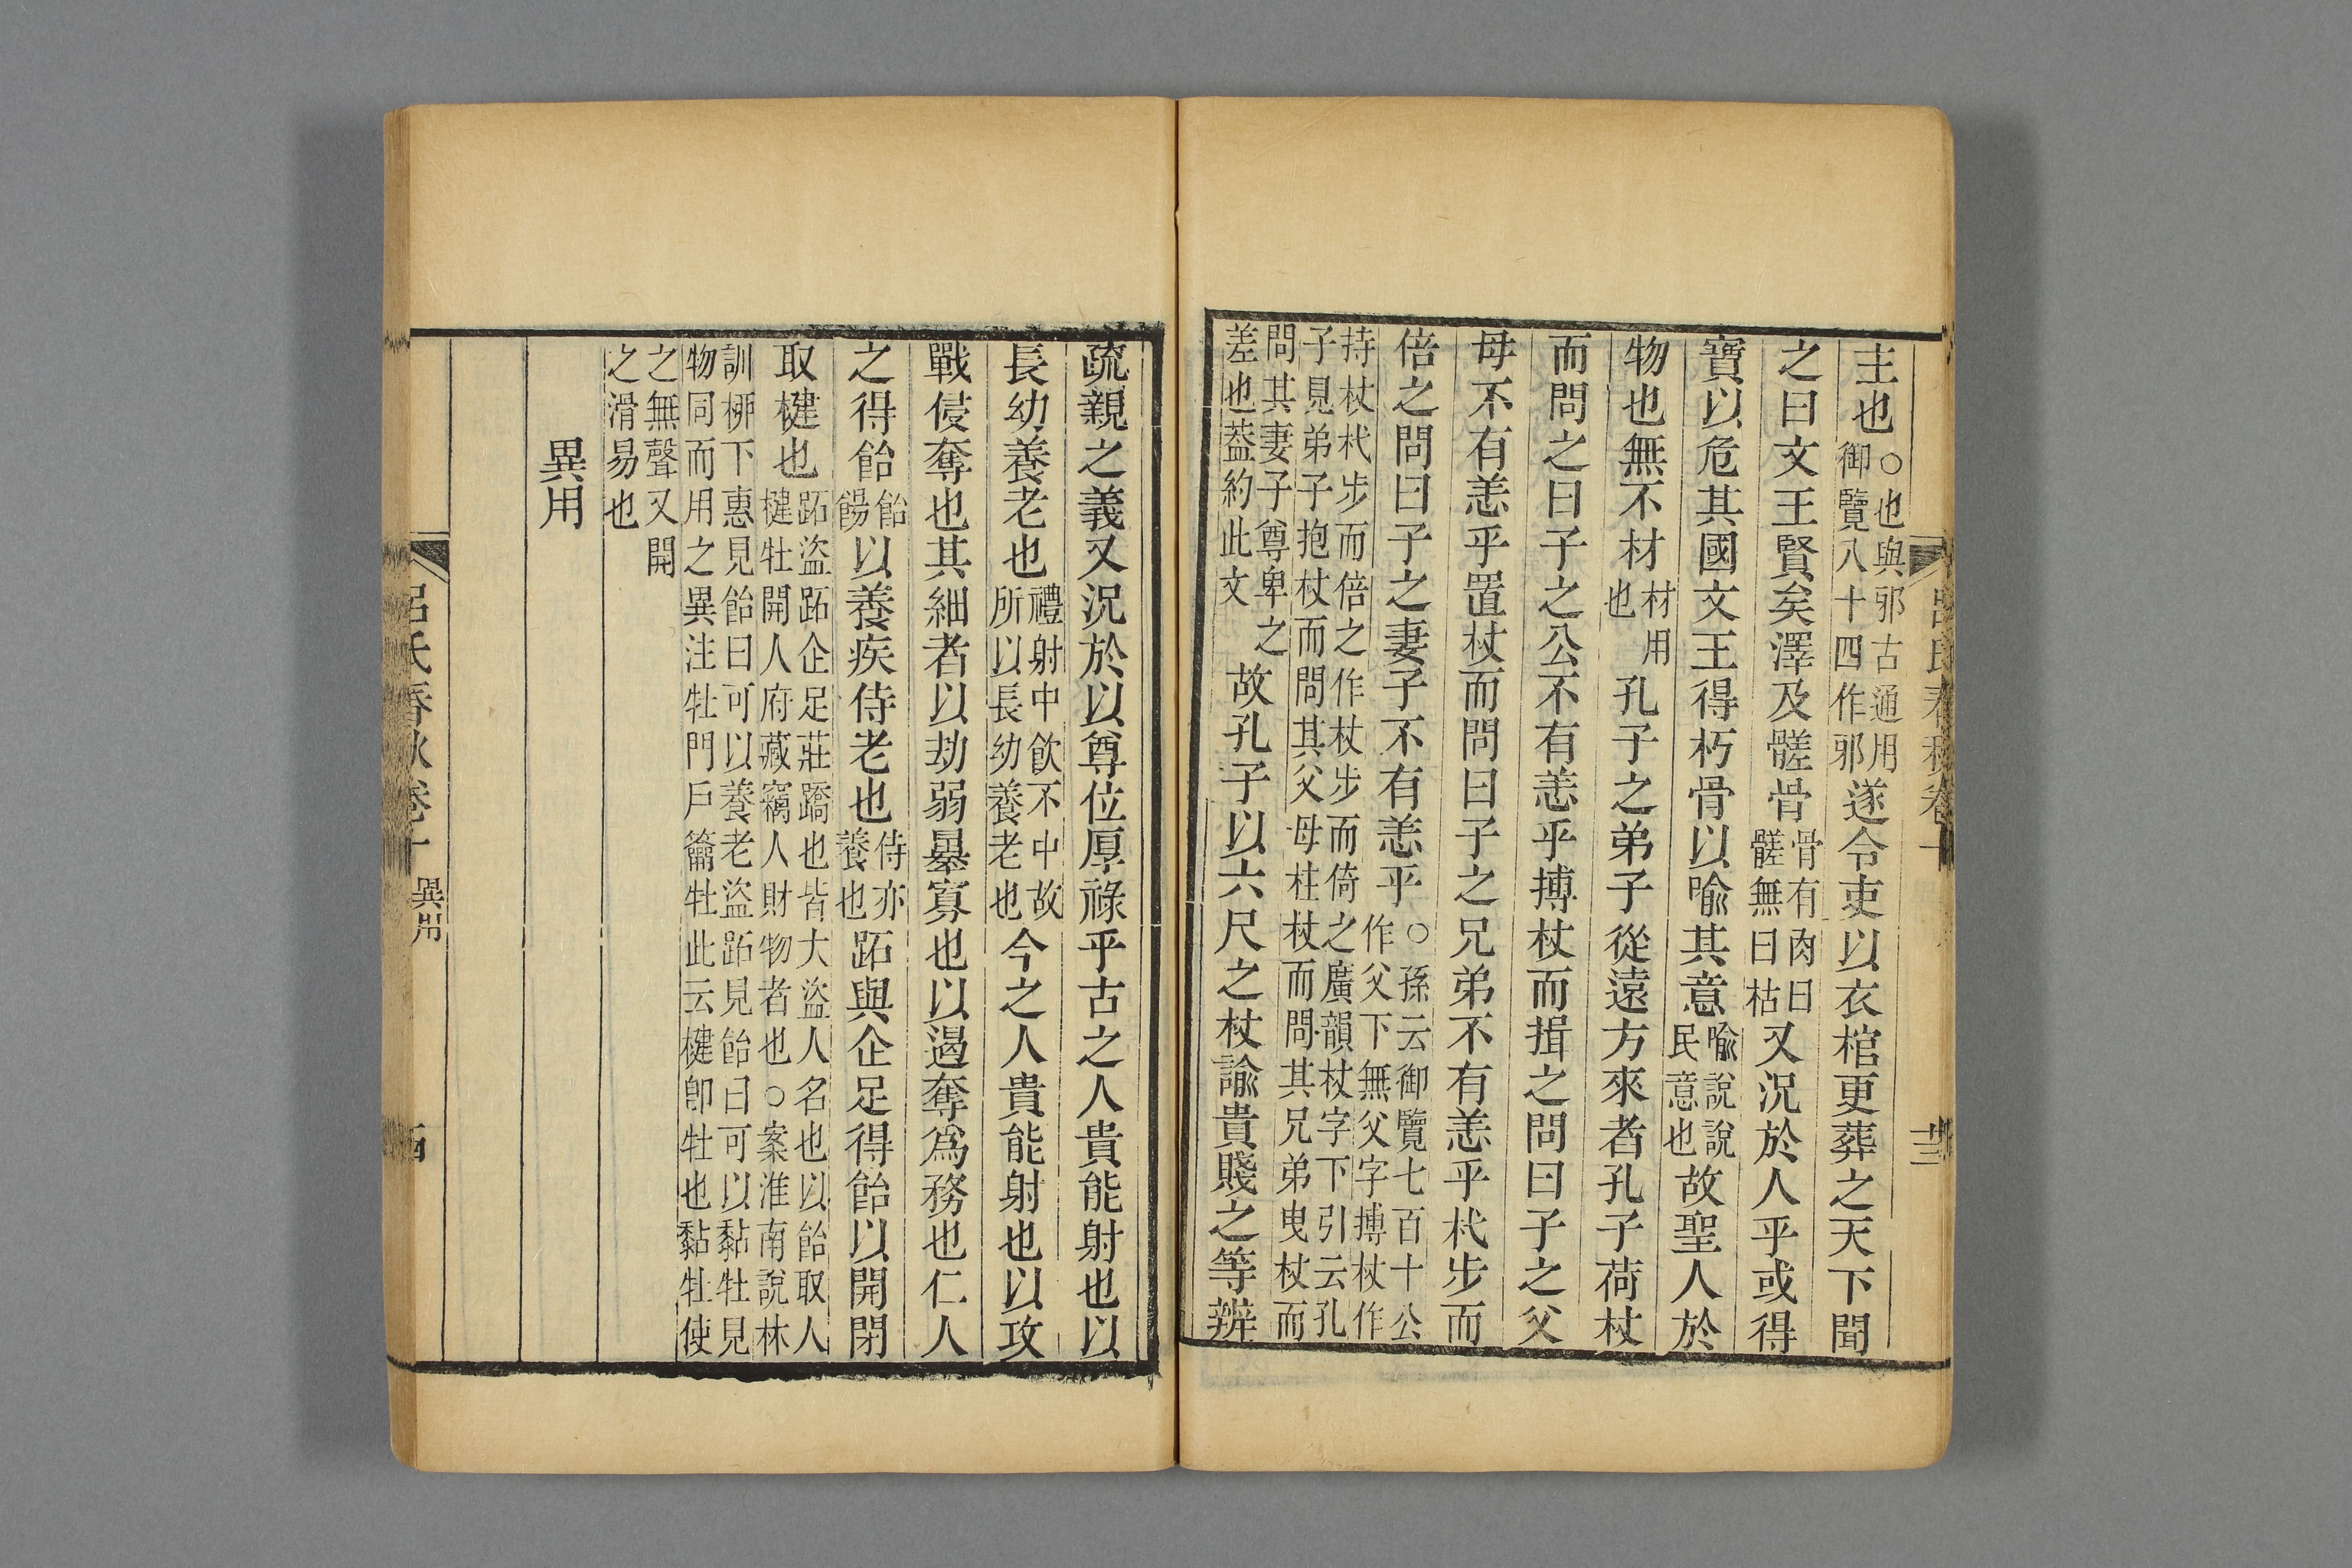 主也○也與邪古通用御覽八十四作邪遂令吏以衣棺更葬之天下聞
之曰文王賢矣澤及髊骨骨有肉曰髊無曰枯又況於人乎或得
寶以危其國文王得朽骨以喻其意喻說說民意也故聖人於
物也無不材材用也孔子之弟子從遠方來者孔子荷杖
而問之曰子之公不有恙乎搏杖而揖之問曰子之父
母不有恙乎置杖而問曰子之兄弟不有恙乎杙步而
倍之問曰子之妻子不有恙乎○孫云御覽七百十公作父下無父字搏杖作
持杖杙步而倍之作杖步而倚之廣韻杖字下引云孔
子見弟子抱杖而問其父母柱杖而問其兄弟曳杖而
問其妻子尊卑之差也葢約此文故孔子以六尺之杖諭貴賤之等辨
疏親之義又況於以尊位厚祿乎古之人貴能射也以
長幼養老也禮射中飲不中故所以長幼養老也今之人貴能射也以攻
戰侵奪也其細者以劫弱暴寡也以遏奪爲務也仁人
之得飴飴餳以養疾侍老也侍亦養也跖與企足得飴以開閉
取楗也跖盜跖企足莊蹻也皆大盜人名也以飴取人楗牡開人府藏竊人財物者也○案淮南說林
訓桺下惠見飴曰可以養老盜跖見飴曰可以黏牡見
物同而用之異注牡門戶籥牡此云楗卽牡也黏牡使
之無聲又開之滑易也
異用
呂氏春秋卷十 異用